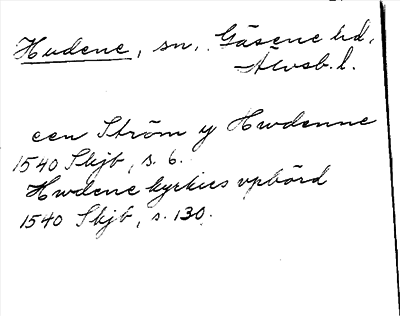 Hudene, sn, Gäsene hd,
Älvsb. l.
een Ström y Hwdenne
1540 Skjb, s. 6.
Hwdene kyrkies vpbörd
1540 Skjb, s. 130.